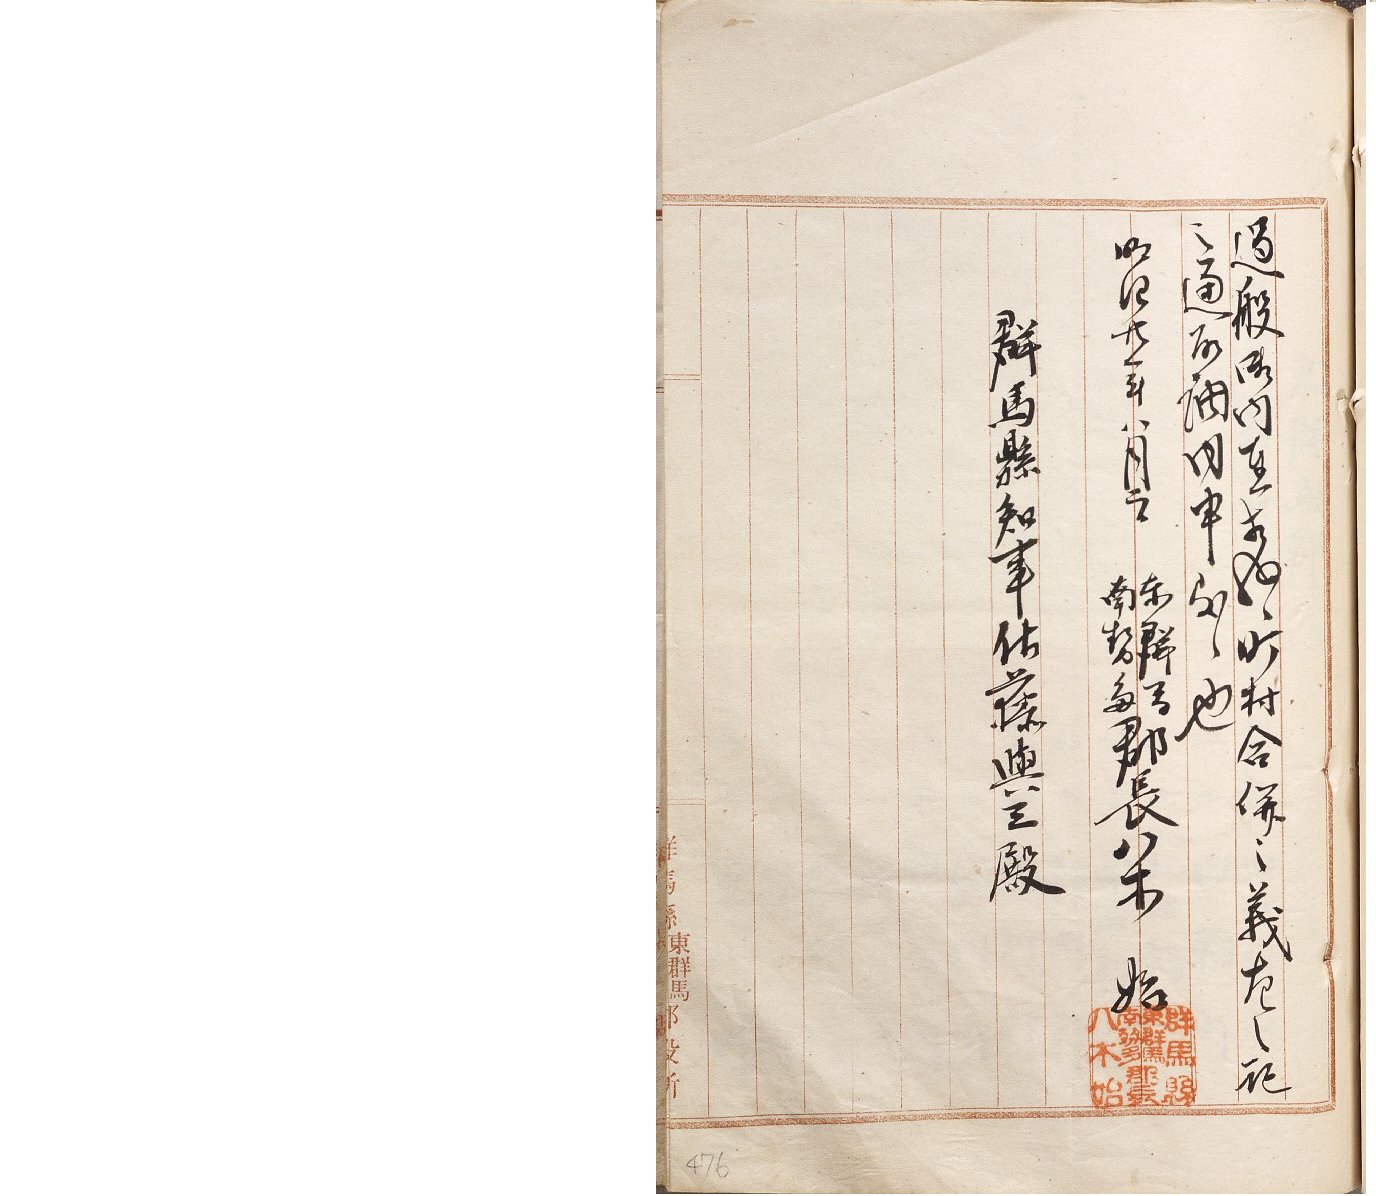 過般御内直相成候町村合併之義左之記
之通取調内申候也
明治廿一年八月二日
東群馬
南勢多郡長八木始
群馬縣
東群馬
南勢多郡長
八木始
群馬縣知事佐藤與三殿
群馬縣東群馬郡役所
476